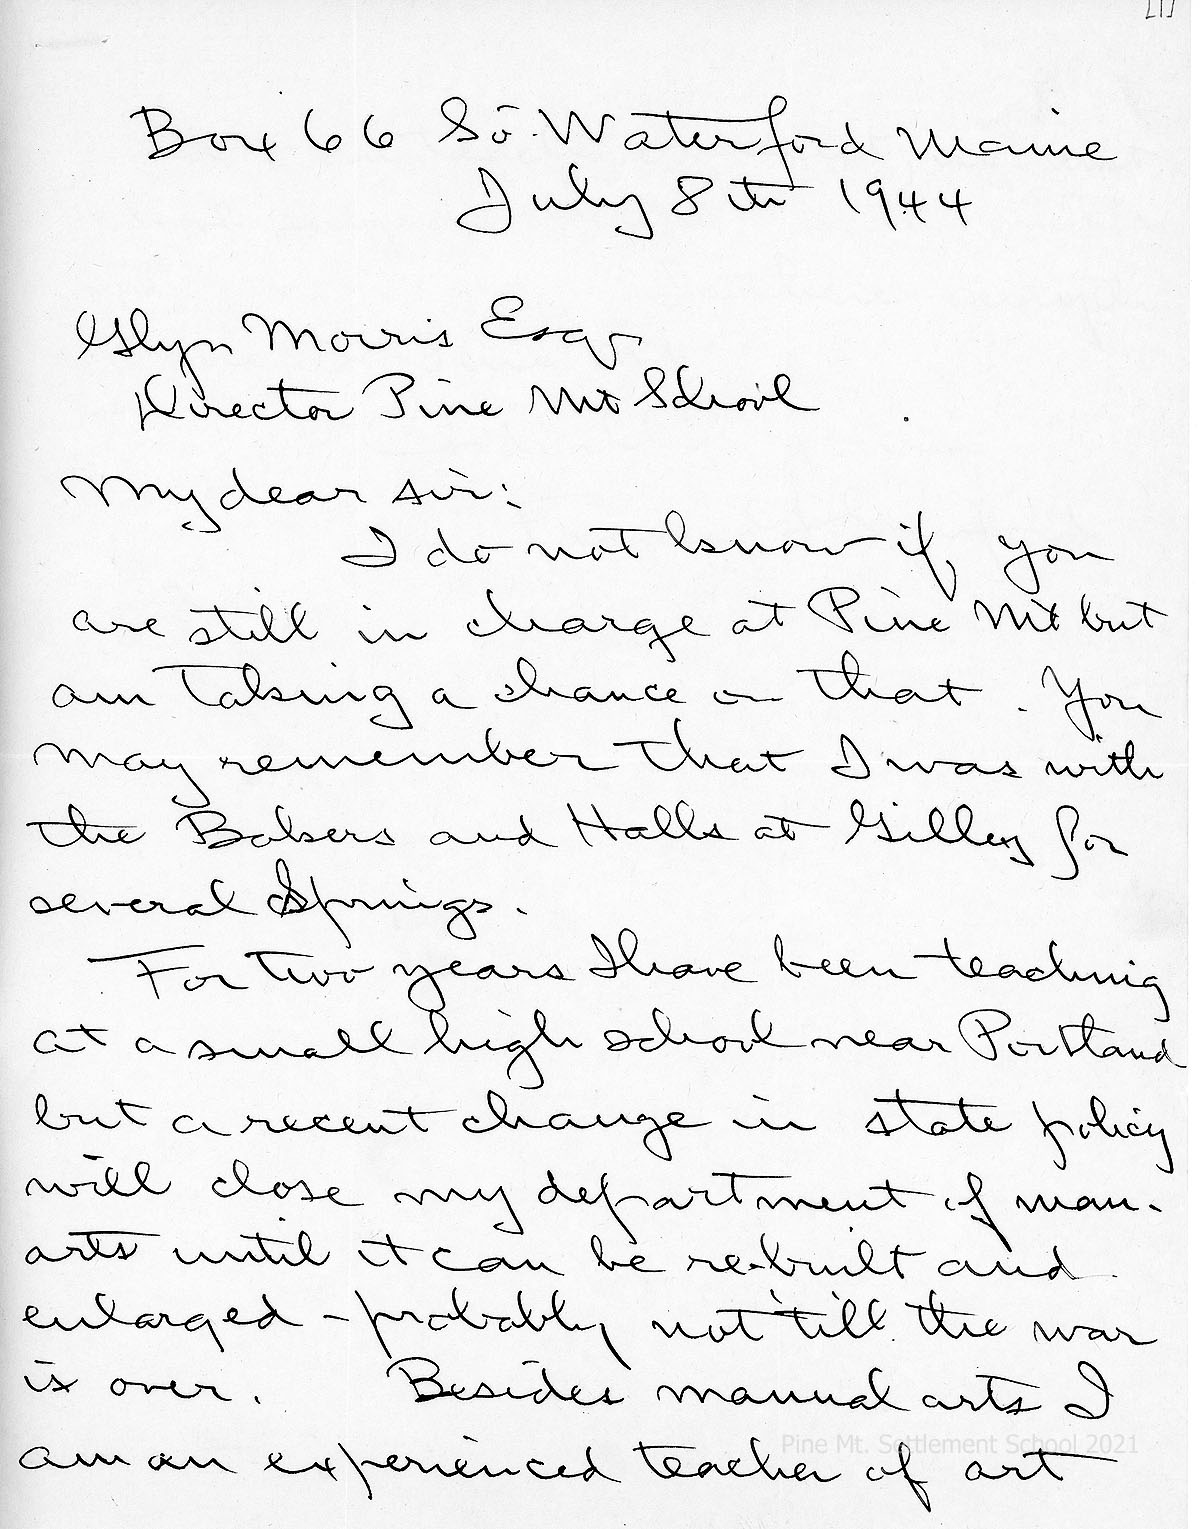 [1]
Box 66 So. Waterford Maine
July 8th 1944
Glyn Morris Esq.
Director Pine Mt School
My dear sir:
I do not know if you
are still in charge at Pine Mt but
am taking a chance on that. You
may remember that I was with
the Bakers and Halls at Gilley for
several Springs.
For two years I have been teaching
at a small high school near Portland
but a recent change in state policy
will close my department of man.
arts until it can be re-built and
enlarged - probably not 'till the war
is over. Besides manual arts I
am an experienced teacher of art
Pine Mt. Settlement School 2021